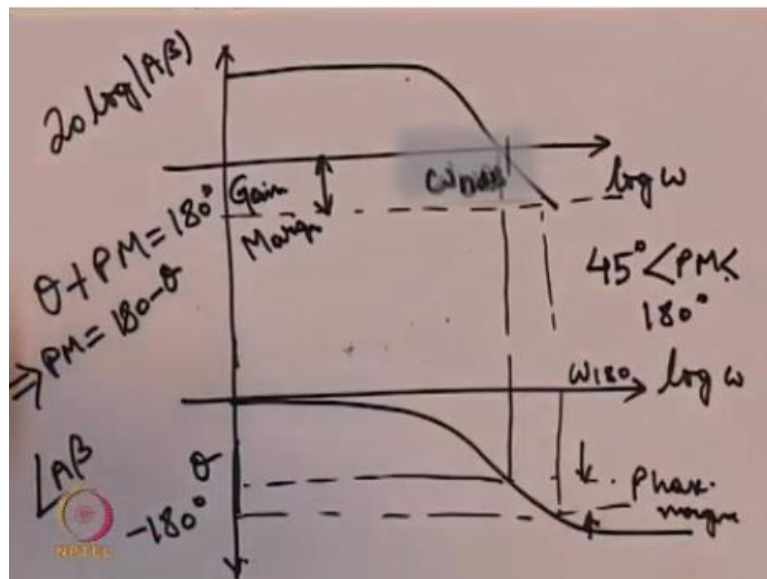 20 log |Aβ|
ω0dB
log ω
Gain
Margin
θ + PM = 180°
⇒ PM = 180 - θ
45° < PM <
180°
ω180
log ω
∠Aβ
θ
-180°
Phase
margin
NPTEL